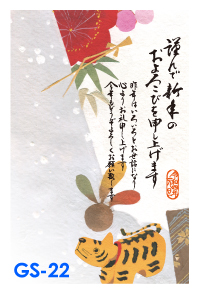 謹んで新年の
およろこびを申し上げます
昨年はいろいろとお世話になり
心よりお礼申し上げます
今年もどうぞよろしくお願い致します
GS-22